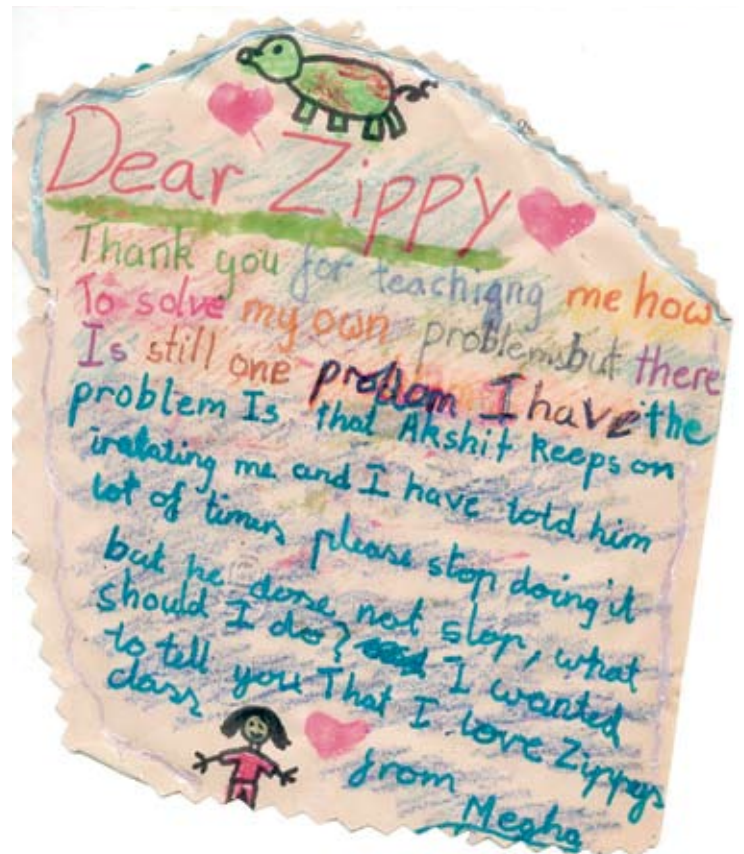 Dear Zippy
Thank you for teachigng me how
To solve my own problems but there
Is still one problom I have the
problem Is that Akshit keeps on
irretating me and I have told him
lot of times please stop doing it
but he dose not stop, what
should I do? I wanted
to tell you That I love Zippys
class
from
Megha